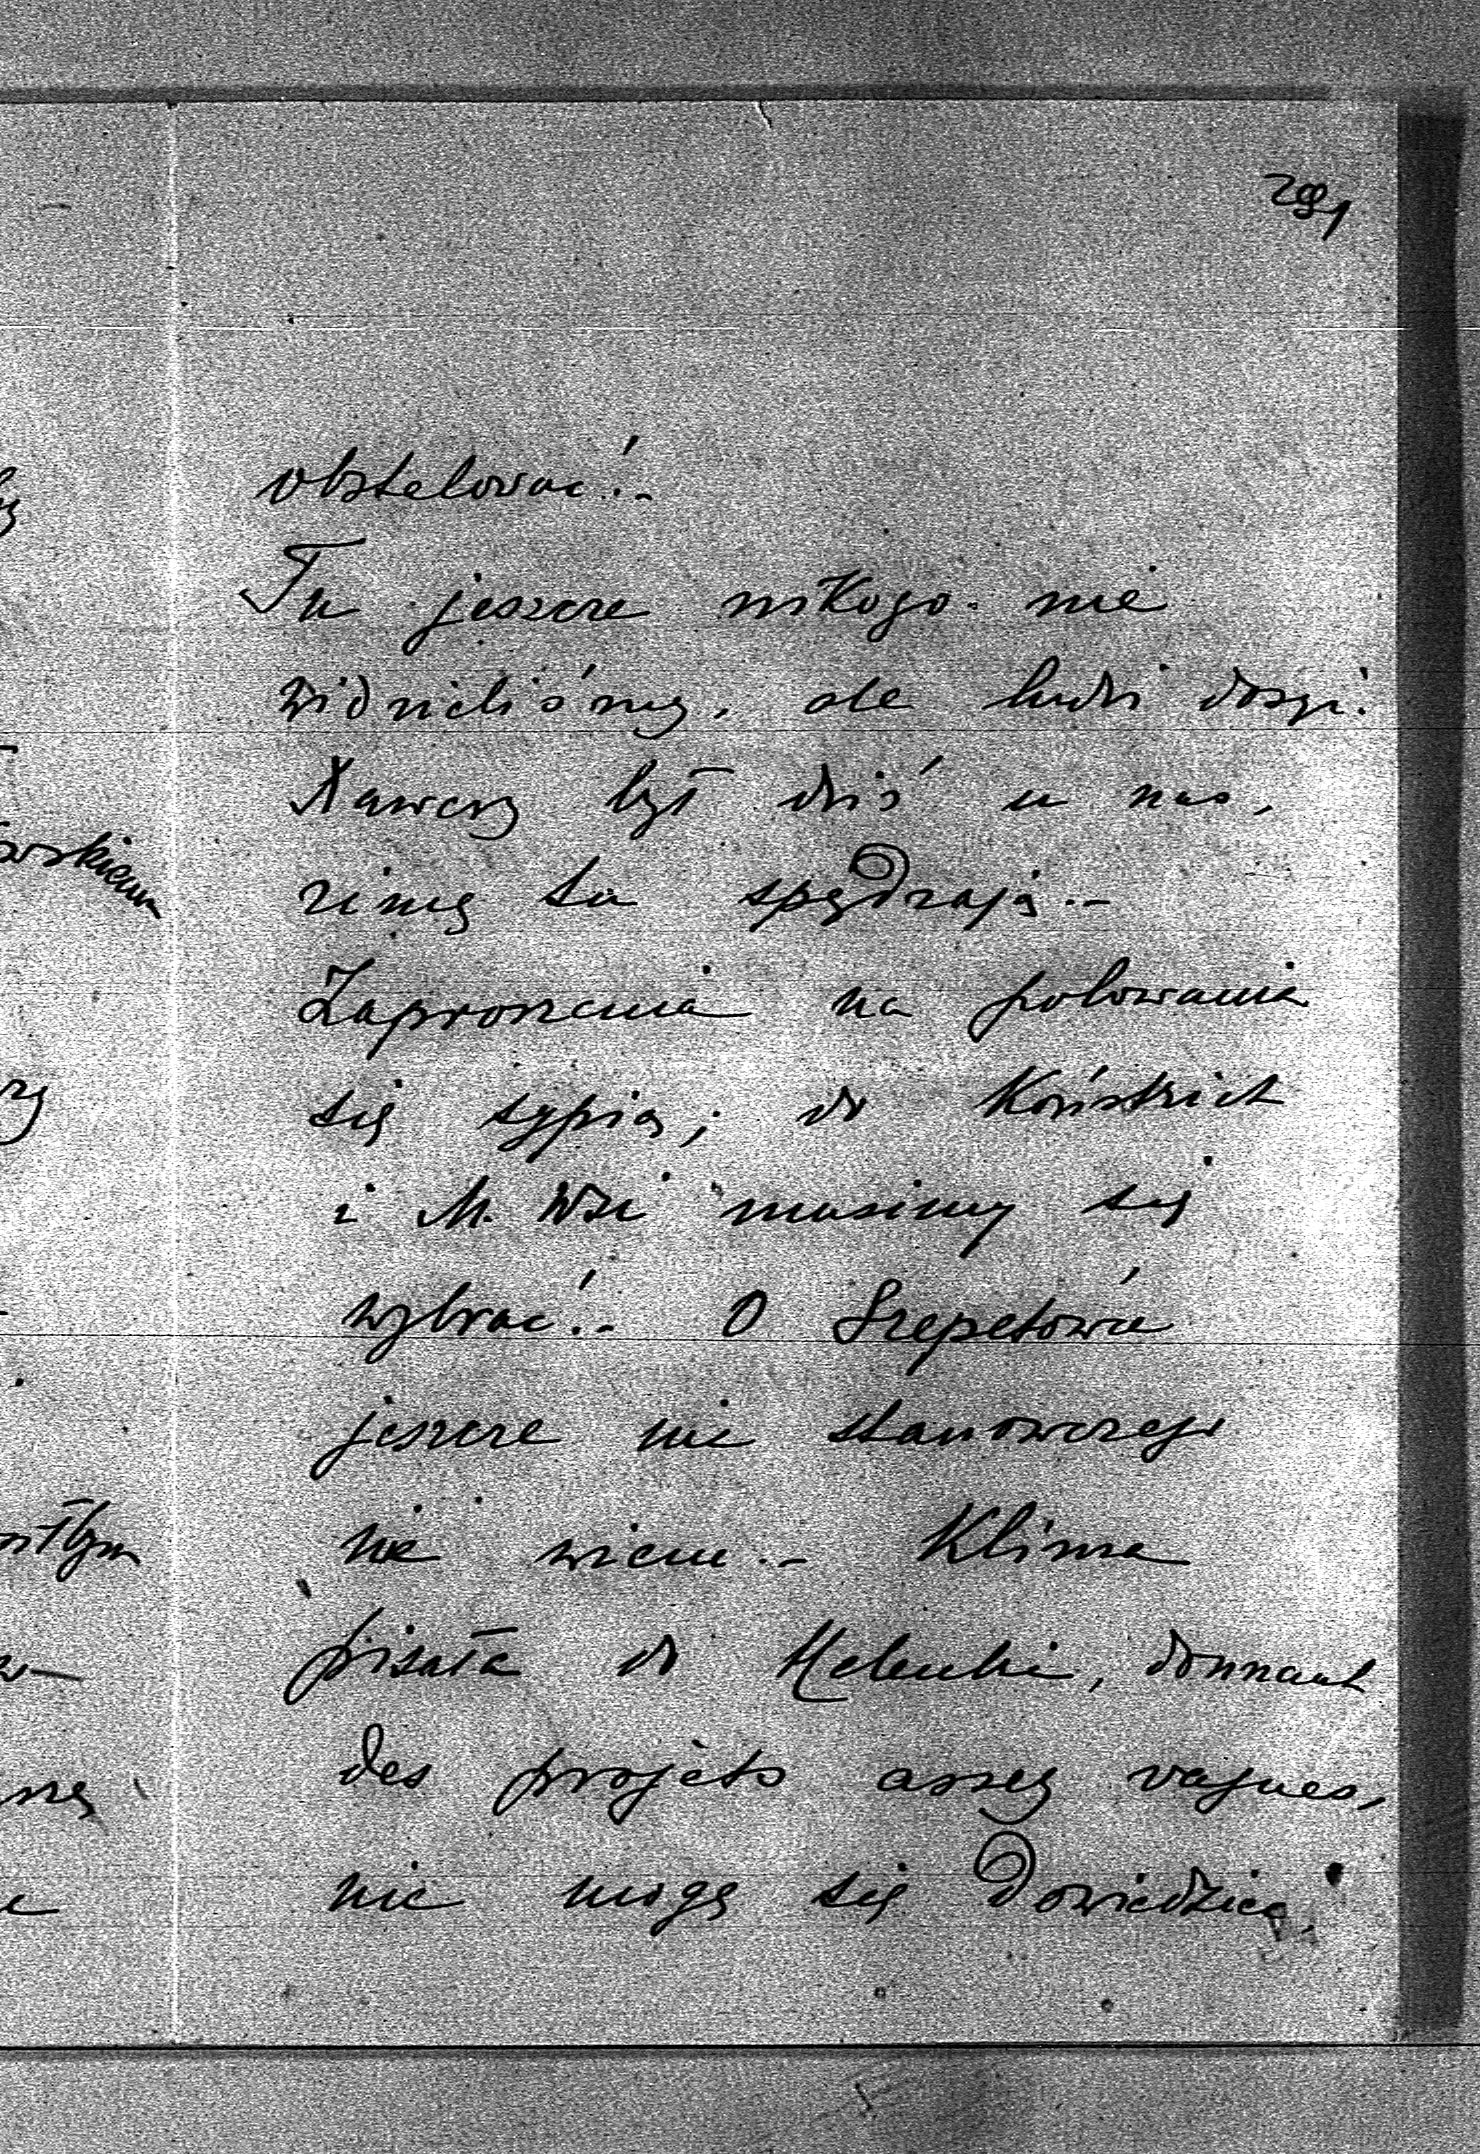 291
obstelować.-
Tu jeszcze nikogo nie
widzieliśmy, ale ludzi dosyć.
Xawery był dziś u nas,
zimę tu spędzają.-
Zaproszenia na polowania
się sypią; do Końskich
i M. Wsi musimy się
wybrać.- O Szepetówce
jeszcze nic stanowczego
nie wiem.- Klimcia
pisała do Helenki, donnant
des projets assez vagues,
nie mogę się dowiedzieć